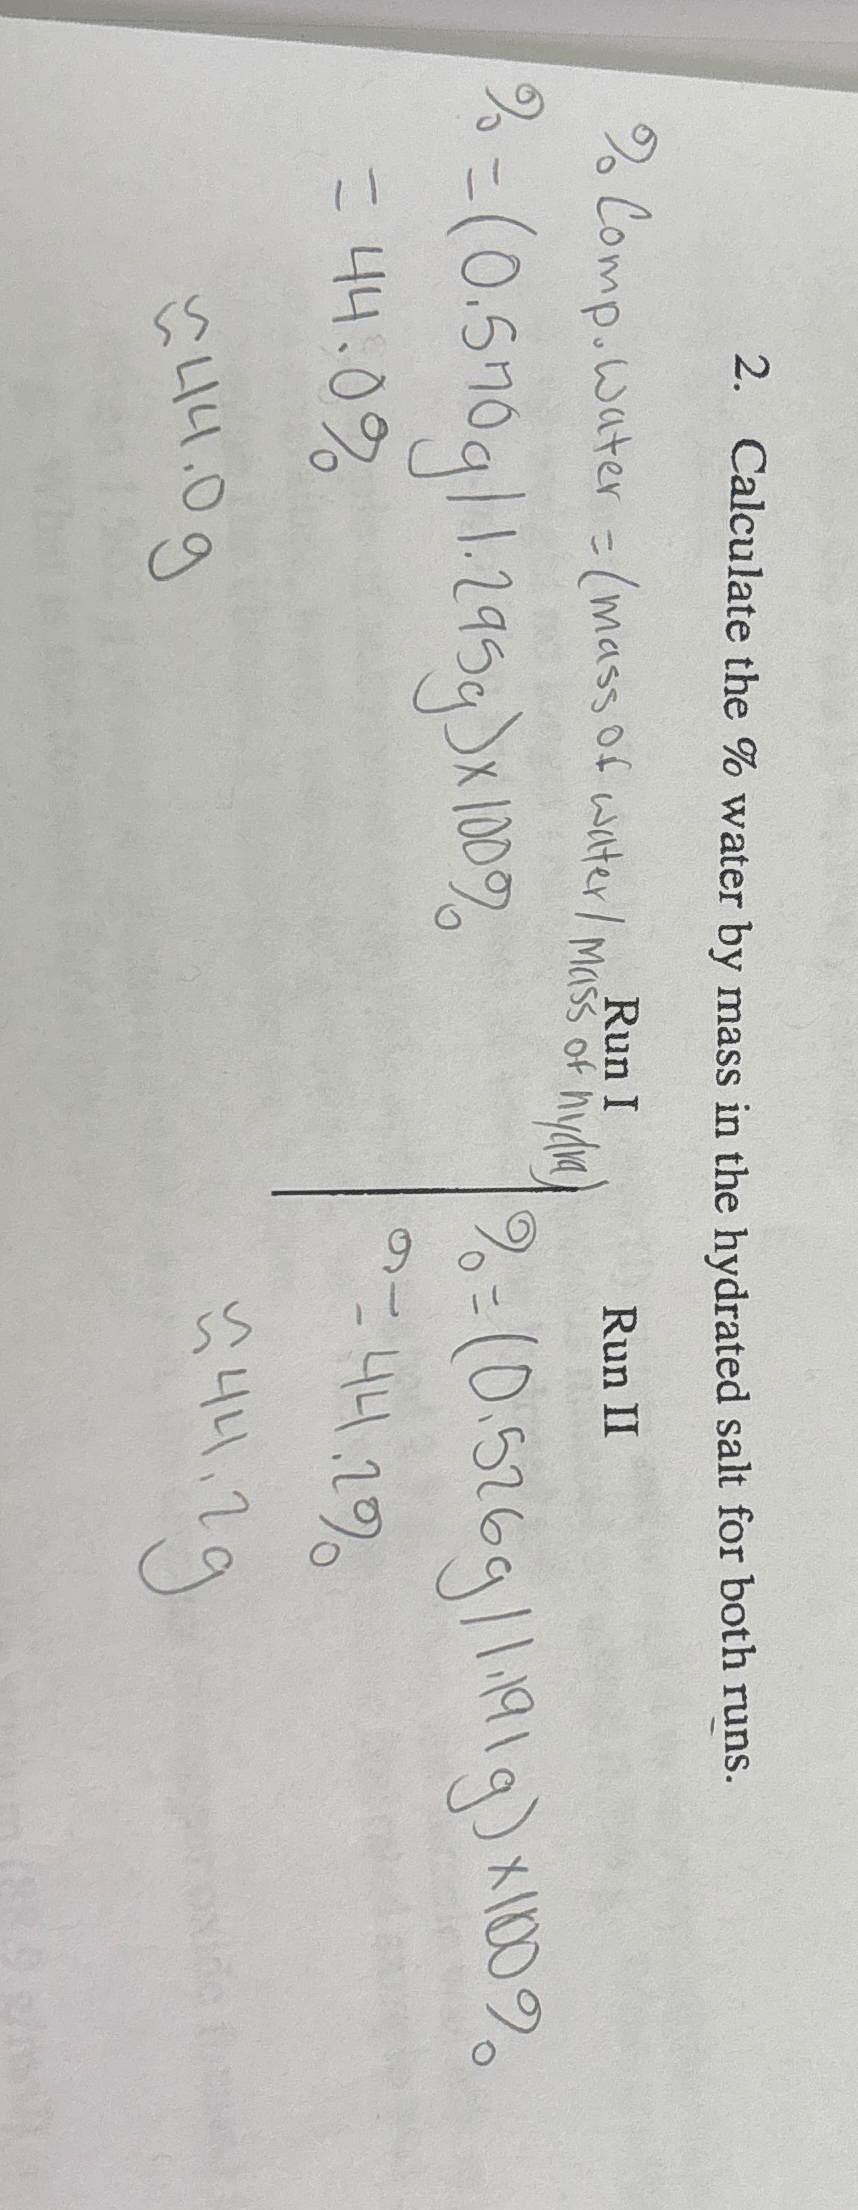 2. Calculate the % water by mass in the hydrated salt for both runs.
Run I
Run II
% Comp. water = (mass of water/mass of hydra)
% = (0.570g/1.295g)x100%
= 44.0%
≈44.0g
% = (0.526g/1.191g)x100%
= 44.2%
≈44.2g